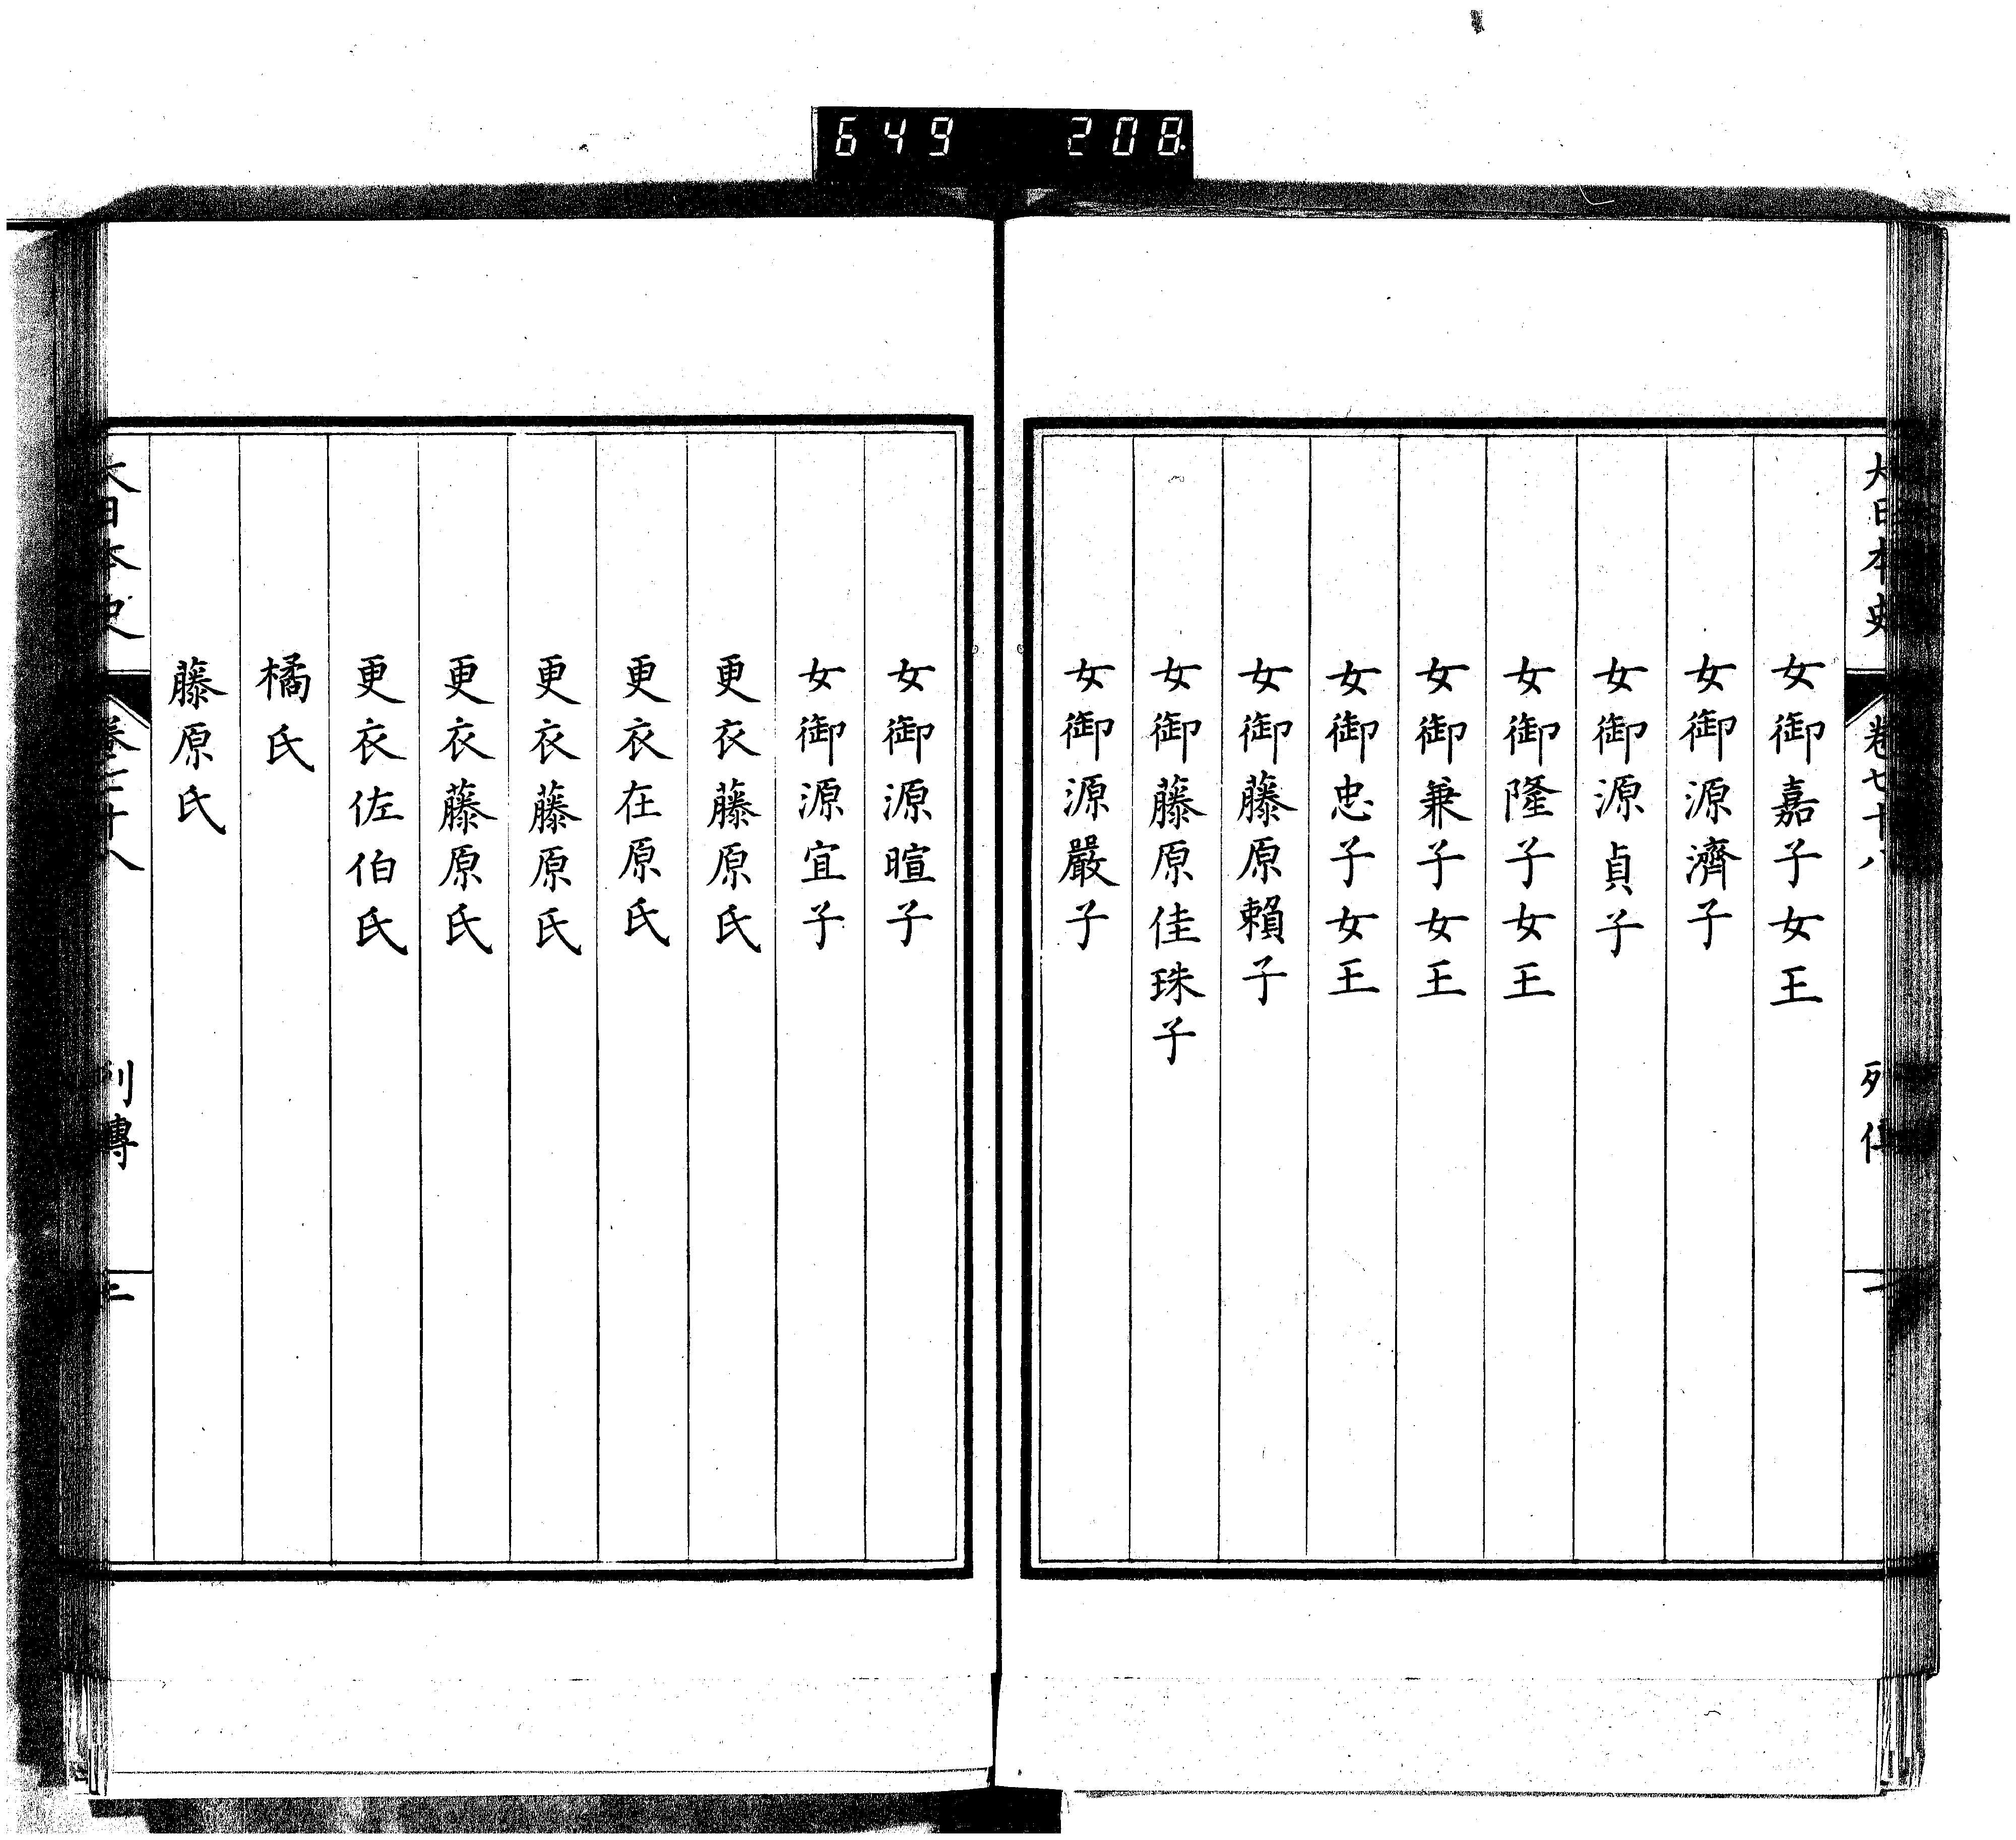 649 208
大日本史 卷七十八 列傳 一
女御嘉子女王
女御源濟子
女御源貞子
女御隆子女王
女御兼子女王
女御忠子女王
女御藤原賴子
女御藤原佳珠子
女御源嚴子
女御源暄子
女御源宜子
更衣藤原氏
更衣在原氏
更衣藤原氏
更衣藤原氏
更衣佐伯氏
橘氏
藤原氏
大日本史 卷七十八 列傳 二